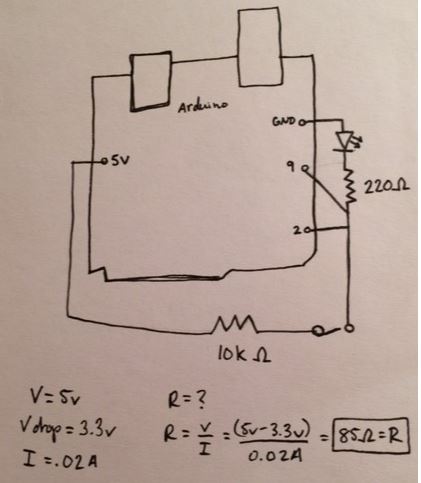 Arduino
GND
5V
9
220Ω
2
10K Ω
V=5v
Vdrop = 3.3v
I =.02A
R = ?
R = V/I = (5v-3.3v)/0.02A = 85Ω=R